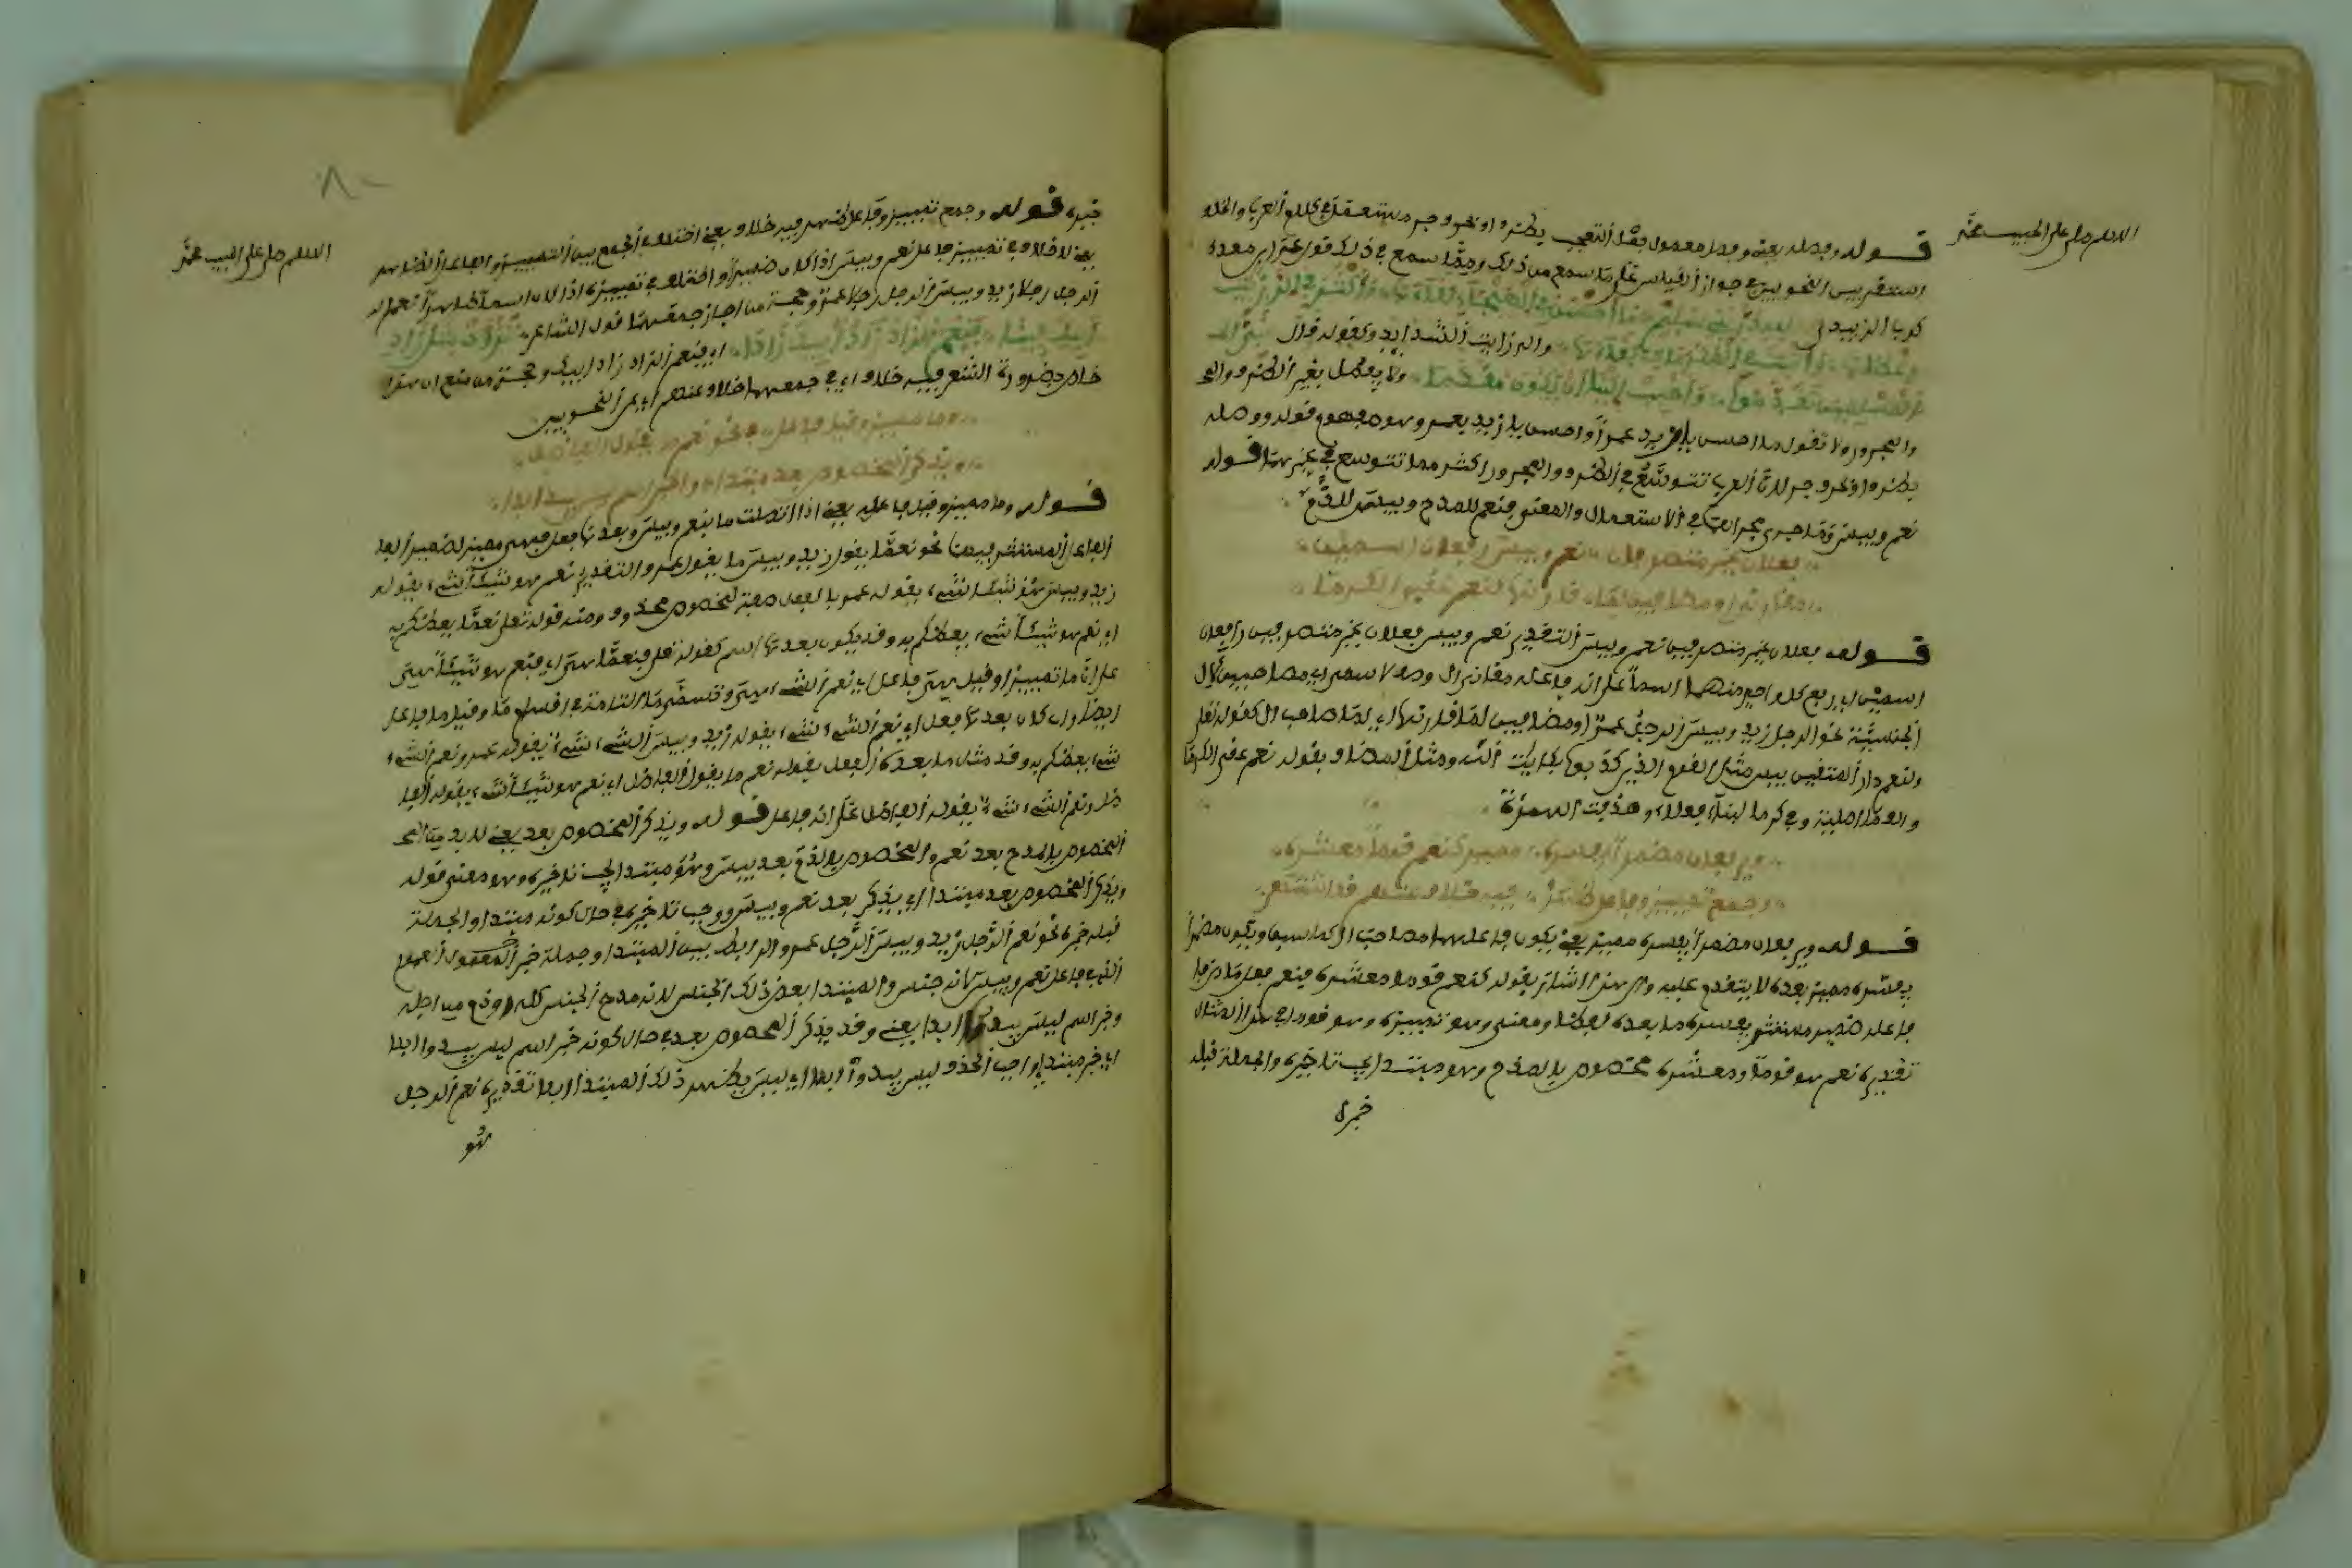 اللهم صل على الحبيب محمد
قوله وفصله يعني وفصل معمول فعل التعجب بظرف او بحرف جر مستعمل في كلام العرب والخلف
استقر بين النحويين في جواز القياس على ما سمع من ذلك ومما سمع في ذلك قول عمرو بن معد
كرب الزبيدي لله در بني سليم ما احسن في الهيجاء لقاءها واكثر في اللزبات
عطاءها واثبت في المكرمات بقاءها واللزبات الشدايد وكقوله وقال نبي
المسلمين تقدموا واحبب الينا ان يكون المقدما ولا يفصل بغير الظرف والمجـ
والمجرور ولا تقول ما احسن يا زيد عمرا واحسن يا زيد بعمرو وهو مفهوم قوله وفصله
بظرف او بحرف جر لان العرب تتوسع في الظرف والمجرور اكثر مما تتوسع في غيرهما قوله
نعم وبيس وما جرى مجراهما في الاستعمال والمعنى فنعم للمدح وبيس للذم
فعلان غير متصرفين نعم وبيس رافعان اسمين
مقارني ال او مضافين لما قارنها كنعم عقبى الكرما
قوله فعلان غير متصرفين نعم وبيس التقدير نعم وبيس فعلان غير متصرفين رافعان
اسمين اي يرفع كل واحد منهما اسما على انه فاعله مقارن ال وصف لاسمين اي مصاحبين لال
الجنسية نحو نعم الرجل زيد وبيس الرجل عمرو او مضافين لما قارنها اي لما صاحب ال كقوله تعالى
ولنعم دار المتقين بيس مثل القوم الذين كذبوا بايات الله ومثل المضاف بقوله نعم عقبى الكرما
والعقبى العاقبة والكرما لبناء فعلاء وحذفت الهمزة
ويرفعان مضمرا يفسره مميز كنعم قوما معشره
وجمع تمييز وفاعل ظهر فيه خلاف عنهم قد اشتهر
قوله ويرفعان مضمرا يفسره مميز يعني يكون فاعلهما مصاحب ال كما سبق ويكون مضمرا
يفسره مميز بعده لا يتقدم عليه والى هذا اشار بقوله كنعم قوما معشره فنعم فعل ماض وفا
فاعله ضمير مستتر يفسره ما بعده لفظا ومعنى وهو تمييزه وهو قوما في هذا المثال
تقديره نعم هو قوما ومعشره مخصوص بالمدح وهو مبتدا يجب تاخيره والجملة قبله
خبره
اللهم صل على الحبيب محمد
خبره قوله وجمع تمييز وفاعل ظهر فيه خلاف يعني اختلف في الجمع بين التمييز والفاعل الظاهر
يعني لا خلاف في تمييز فاعل نعم وبيس اذا كان ضميرا واختلف في تمييزه اذا كان اسما ظاهرا كنعم
الرجل رجلا زيد وبيس الرجل رجلا عمرو وحجة من اجاز جمعهما قول الشاعر تزود مثل زاد
ابيك فينا فنعم الزاد زاد ابيك زادا اي فنعم الزاد زاد ابيك وحجة من منع ان هذا
خاص بضرورة الشعر فيه خلاف اي في جمعهما خلاف عنهم اي عن النحويين
وما مميز وقيل فاعل في نحو نعم ما يقول الفاضل
ويذكر المخصوص بعد مبتدا او خبر اسم ليس يبدو ابدا
قوله وما مميز وقيل فاعل يعني اذا اتصلت ما بنعم وبيس وبعدها فعل فهي مميز لضمير الفا
الفاعل المستتر فيهما نحو نعم ما يقول زيد وبيس ما يقول عمرو والتقدير نعم هو شيئا الشيء يقوله
زيد وبيس هو شيئا الشيء يقوله عمرو فالفعل صفة لمخصوص محذوف ومنه قوله تعالى نعما يعظكم به
اي نعم هو شيئا شيء يعظكم به وقد يكون بعدها اسم كقوله تعالى فنعما هي اي فنعم هو شيئا هي
على ان ما تمييز او قيل هي فاعل اي نعم الشيء هي وتسمى ما التامة في اقسام ما وقيل ما فاعل
ايضا وان كان بعدها فعل اي نعم الشيء شيء يقوله زيد وبيس الشيء شيء يقوله عمرو ونعم الشيء
شيء يعظكم به وقد مثل ما بعده الفعل بقوله نعم ما يقول الفاضل اي نعم هو شيئا شيء يقوله الفا
ضل ونعم الشيء شيء يقوله الفاضل على انه فاعل قوله ويذكر المخصوص بعد يعني لا بد من المخـ
المخصوص بالمدح بعد نعم والمخصوص بالذم بعد بيس وهو مبتدا يجب تاخيره وهو معنى قوله
ويذكر المخصوص بعد مبتدا اي يذكر بعد نعم وبيس ووجب تاخيره في حال كونه مبتدا والجملة
قبله خبره نحو نعم الرجل زيد وبيس الرجل عمرو والرابط بين المبتدا وجملة خبره العموم
الذي في فاعل نعم وبيس لانه جنس والمبتدا بعض ذلك الجنس لانه مدح الجنس كله او ذم من اجله
وخبر اسم ليس يبدو ابدا يعني وقد يذكر المخصوص بعده حال كونه خبر اسم ليس يبدو ابدا
اي خبر مبتدا واجب الحذف ليس يبدو ابدا اي ليس يظهر ذلك المبتدا ابدا تقديره نعم الرجل
هو